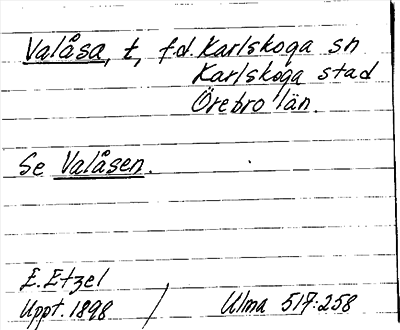 Valåsa, t, f.d. Karlskoga sn
Karlskoga stad
Örebro län.
Se Valåsen.
E. Etzel
Uppt. 1898 / Ulma 517:258